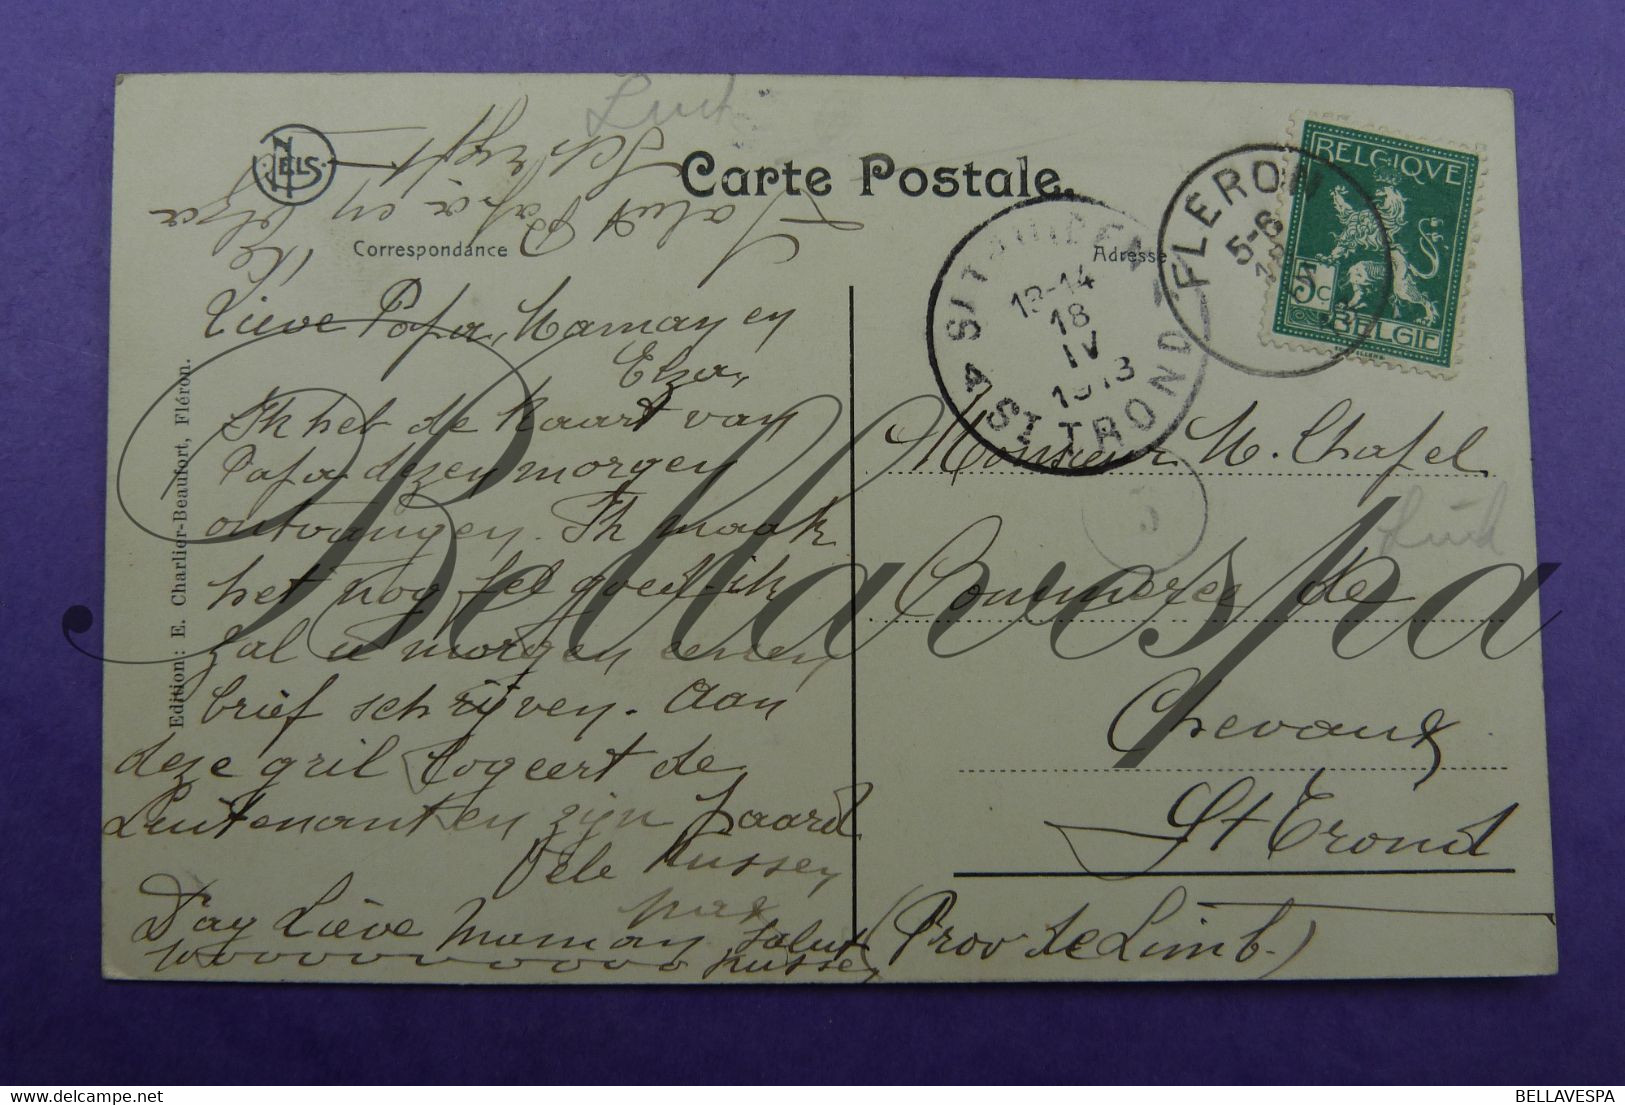 NELS
Carte Postale.
Correspondance
Adresse
Salut Papa en Elza
Lieve Papa, Maman en
Elza,
Ik heb de kaart van
Papa dezen morgen
ontvangen. Ik maak
het nog fel goed. ik
zal u morgen eenen
brief schrijven. Aan
deze gril logeert de
Luitenant en zijn paard
Vele kussen
Dag Lieve Maman, Salut
kussen
Edition: E. Charlier-Beaufort, Fléron.
ST TRUIDEN
13-14
18
IV
1913
ST TROND
A
FLERON
5-6
BELGIQVE
5c
BELGIE
Monsieur M. Chapel
Commerce de
Chevaux
St Trond
(Prov de Limb.)
5
Bellavespa
BELLAVESPA